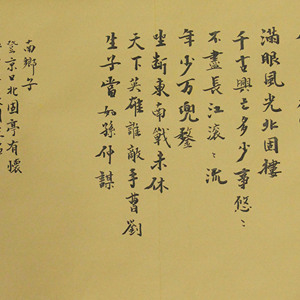 滿眼風光北固樓
千古興亡多少事悠〻
不盡長江滾〻流
年少万兜鍪
坐斷東南戰未休
天下英雄誰敵手曹劉
生子當如孫仲謀
南鄉子
登京口北固亭有懷